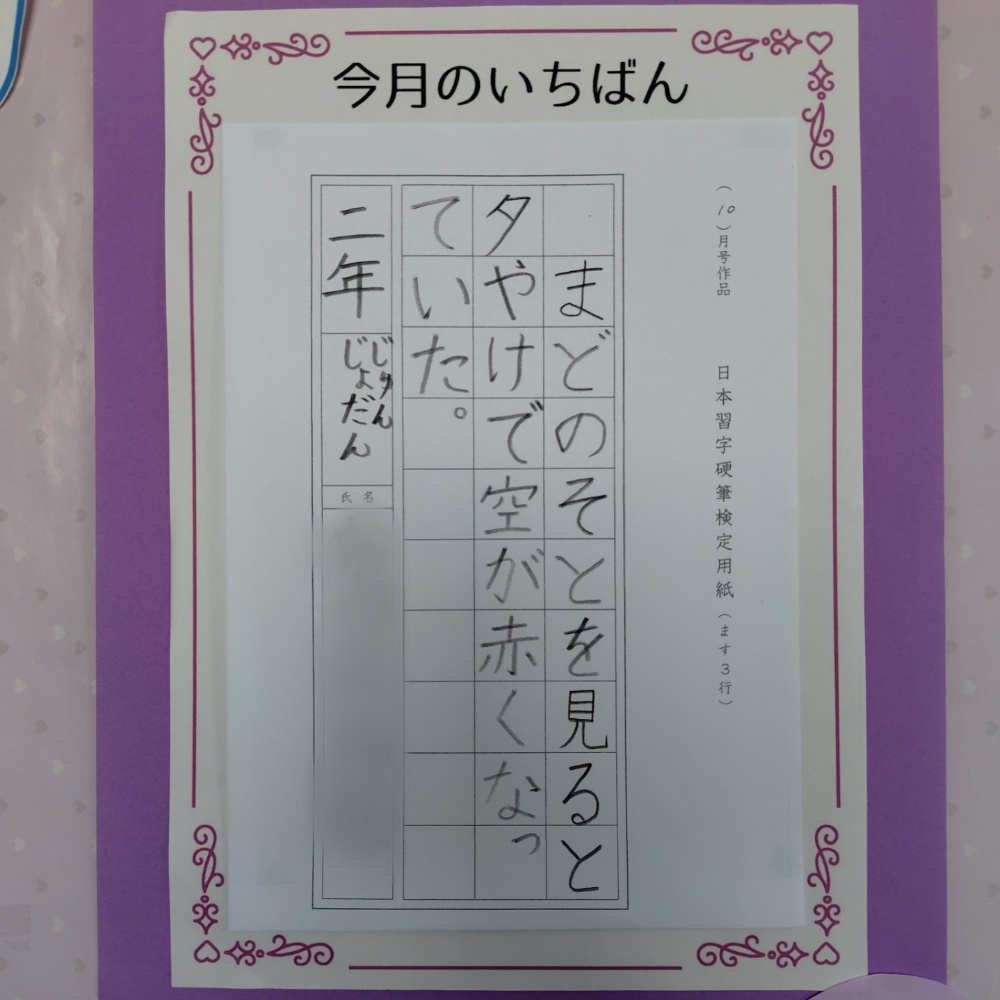 今月のいちばん
(10)月号作品　日本習字硬筆検定用紙(ます3行)
まどのそとを見ると
夕やけで空が赤くなっ
ていた。
二年
じゅん
じょだん
氏名